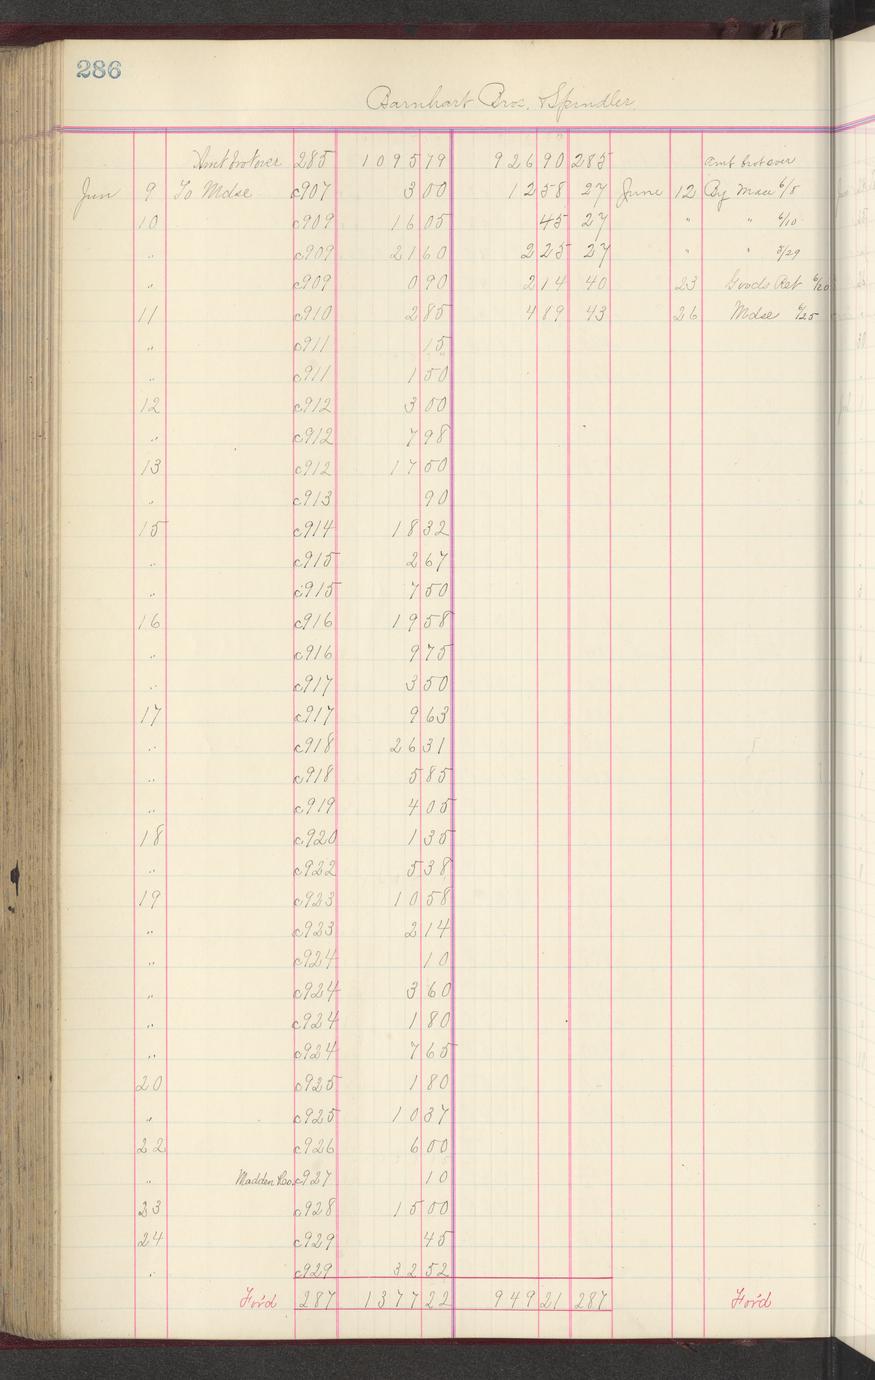 286
Barnhart Bros. & Spindler
Amt brot over 285 1095 79 926 90 285 Amt brot over
Jun 9 To Mdse c907 3 00 12 58 27 June 12 By Mdse 6/8
10 c909 16 05 45 27 " " 6/10
" c909 21 60 2 25 27 " " 5/29
" c909 0 90 2 14 40 23 Goods Ret 6/20
11 c910 2 85 4 89 43 26 Mdse 6/25
" c911 15
" c911 1 50
12 c912 3 00
" c912 7 98
13 c912 17 50
" c913 90
15 c914 18 32
" c915 2 67
" c915 7 50
16 c916 19 58
" c916 9 75
" c917 3 50
17 c917 9 63
" c918 26 31
" c918 5 85
" c919 4 05
18 c920 1 35
" c922 5 38
19 c923 10 58
" c923 2 14
" c924 10
" c924 3 60
" c924 1 80
" c924 7 65
20 c925 1 80
" c925 10 37
22 c926 6 00
" Madden Roo. c927 10
23 c928 15 00
24 c929 45
" c929 32 52
For'd 287 1377 22 949 21 287 For'd